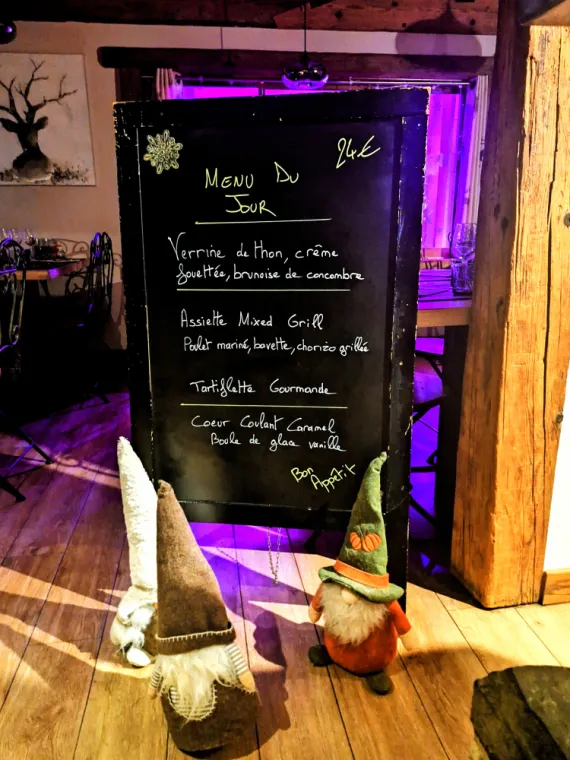 24€
Menu Du
Jour
Verrine de thon, crême
fouettée, brunoise de concombre
Assiette Mixed Grill
Poulet mariné, bavette, chorizo grillée
Tartiflette Gourmande
Coeur Coulant Caramel
Boule de glace vanille
Bon
Appétit